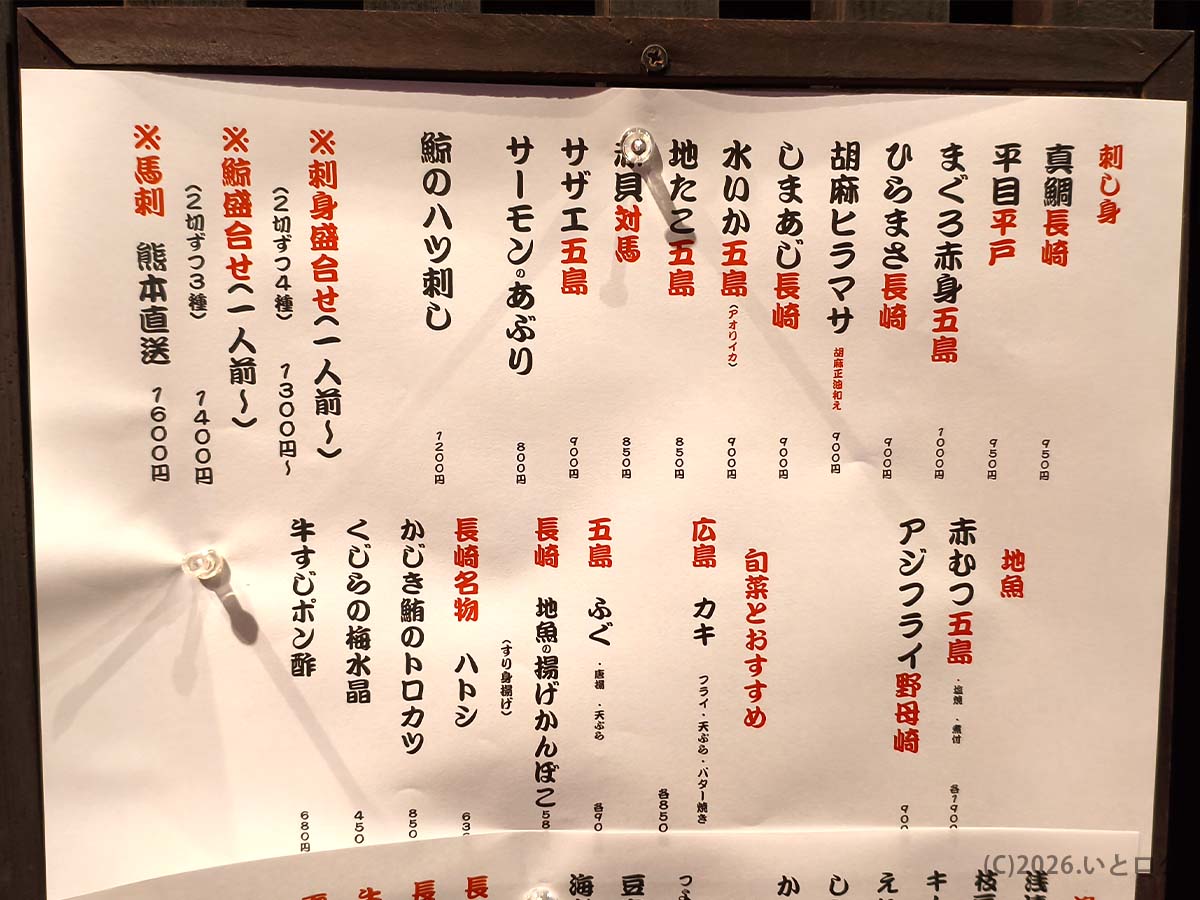 刺し身
真鯛長崎 950円
平目平戸 950円
まぐろ赤身五島 1000円
ひらまさ長崎 900円
胡麻ヒラマサ 胡麻正油和え 900円
しまあじ長崎 900円
水いか五島(アオリイカ) 900円
地たこ五島 850円
貝対馬 850円
サザエ五島 900円
サーモンのあぶり 800円
鯨のハツ刺し 1200円
※刺身盛合せ(一人前～)
(2切ずつ4種) 1300円～
※鯨盛合せ(一人前～)
(2切ずつ3種) 1400円
※馬刺 熊本直送 1600円
地魚
赤むつ五島 ・塩焼 ・煮付 各1900
アジフライ野母崎 900
旬菜とおすすめ
広島 カキ フライ・天ぷら・バター焼き
各850
五島 ふぐ ・唐揚 ・天ぷら 各90
長崎 地魚の揚げかんぼこ 58
(すり身揚げ)
長崎名物 ハトシ 63
かじき鮪のトロカツ 850
くじらの梅水晶 450
牛すじポン酢 680円
浅
枝
キ
え
し
か
つ
豆
海
長
長
牛
(C)2026.いとログ